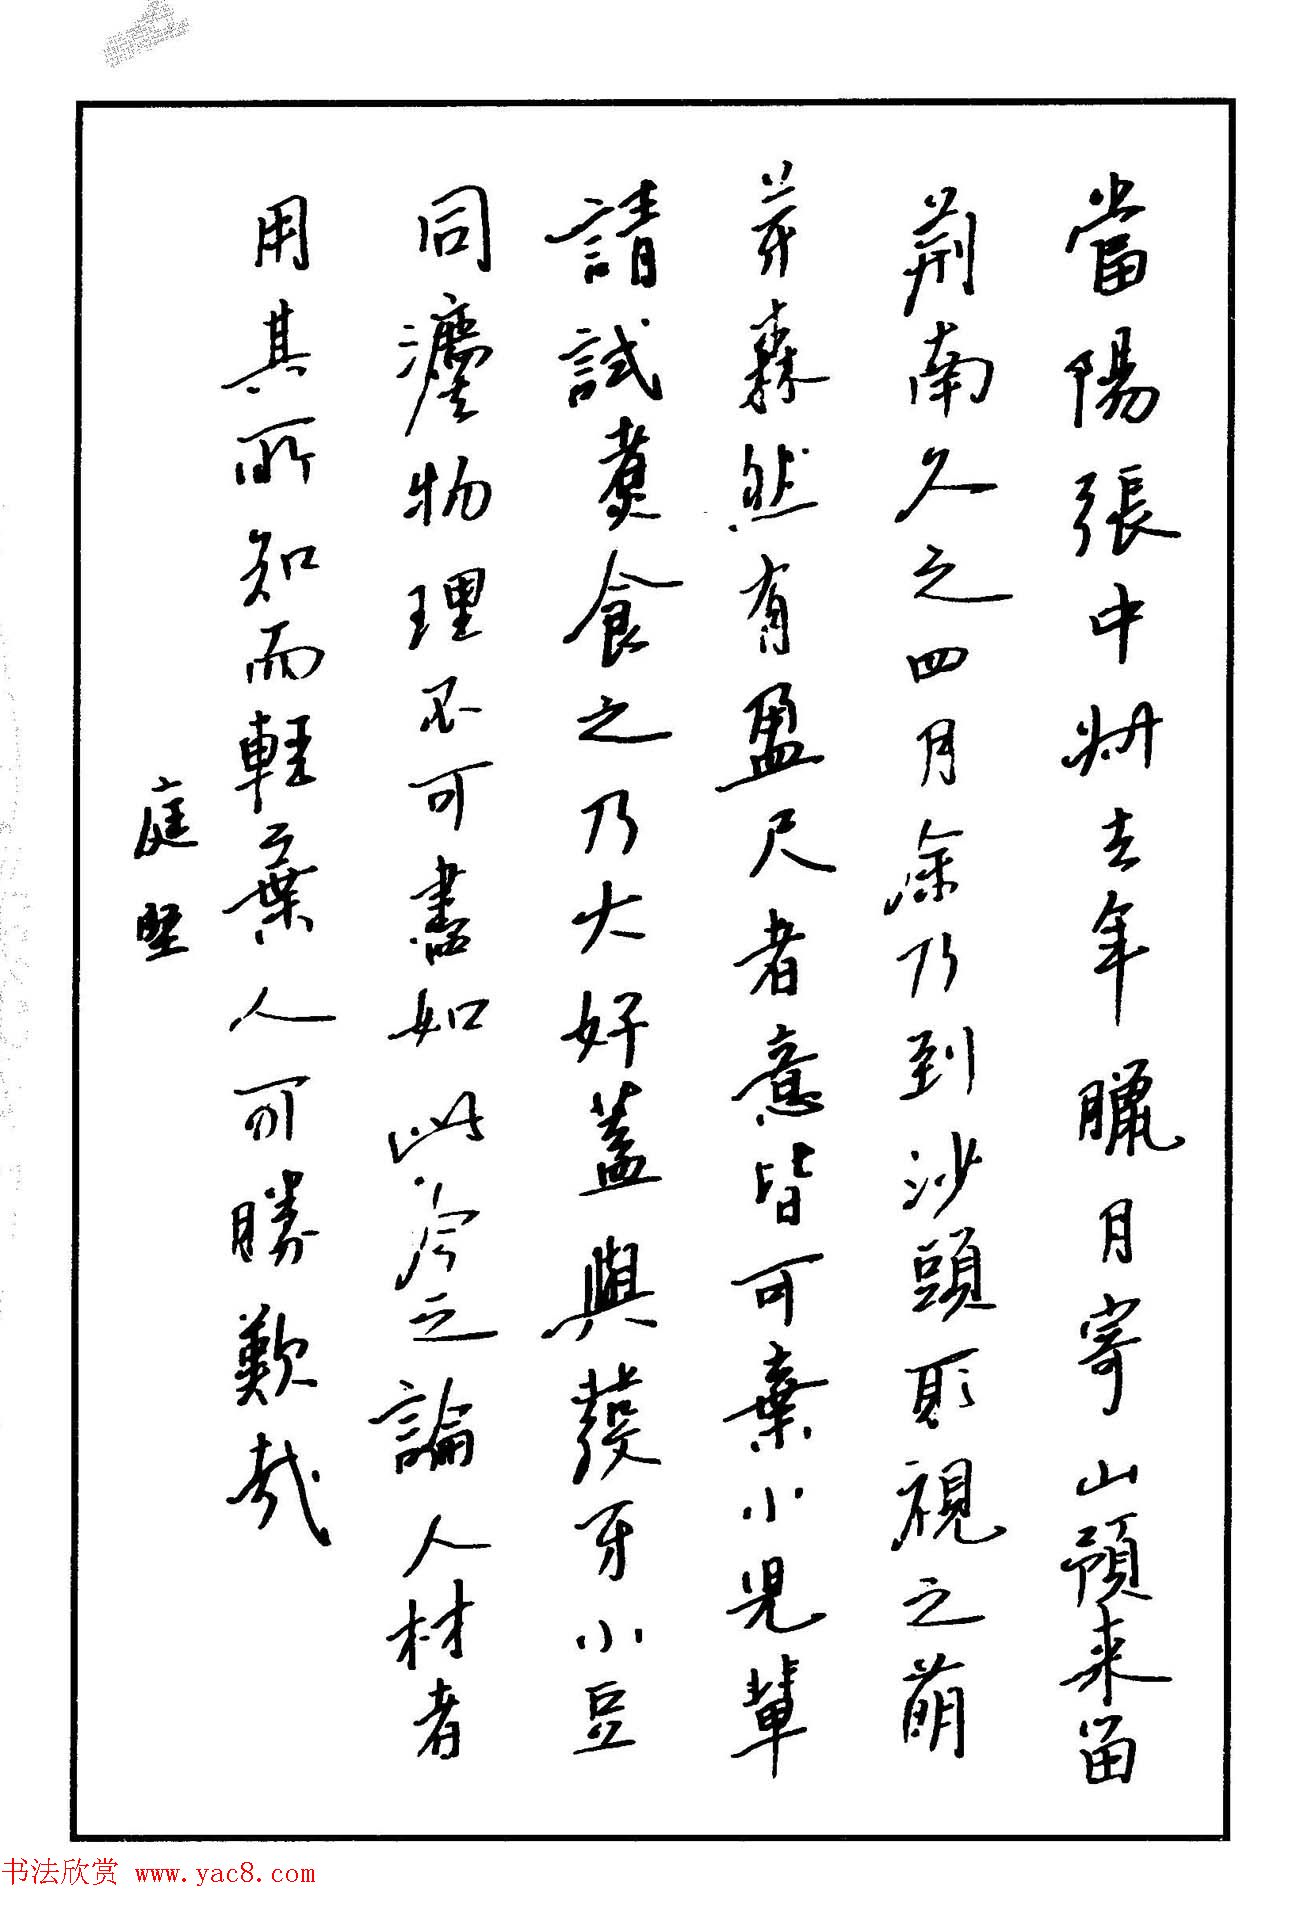 當陽張中叔去年臘月寄山預来留
荊南久之四月余乃到沙頭取視之萌
芽森然有盈尺者意皆可棄小兒輩
請試煑食之乃大好蓋與發牙小豆
同灋物理不可盡如此今之論人材者
用其所知而輕棄人可勝歎哉
庭堅
书法欣赏 www.yac8.com